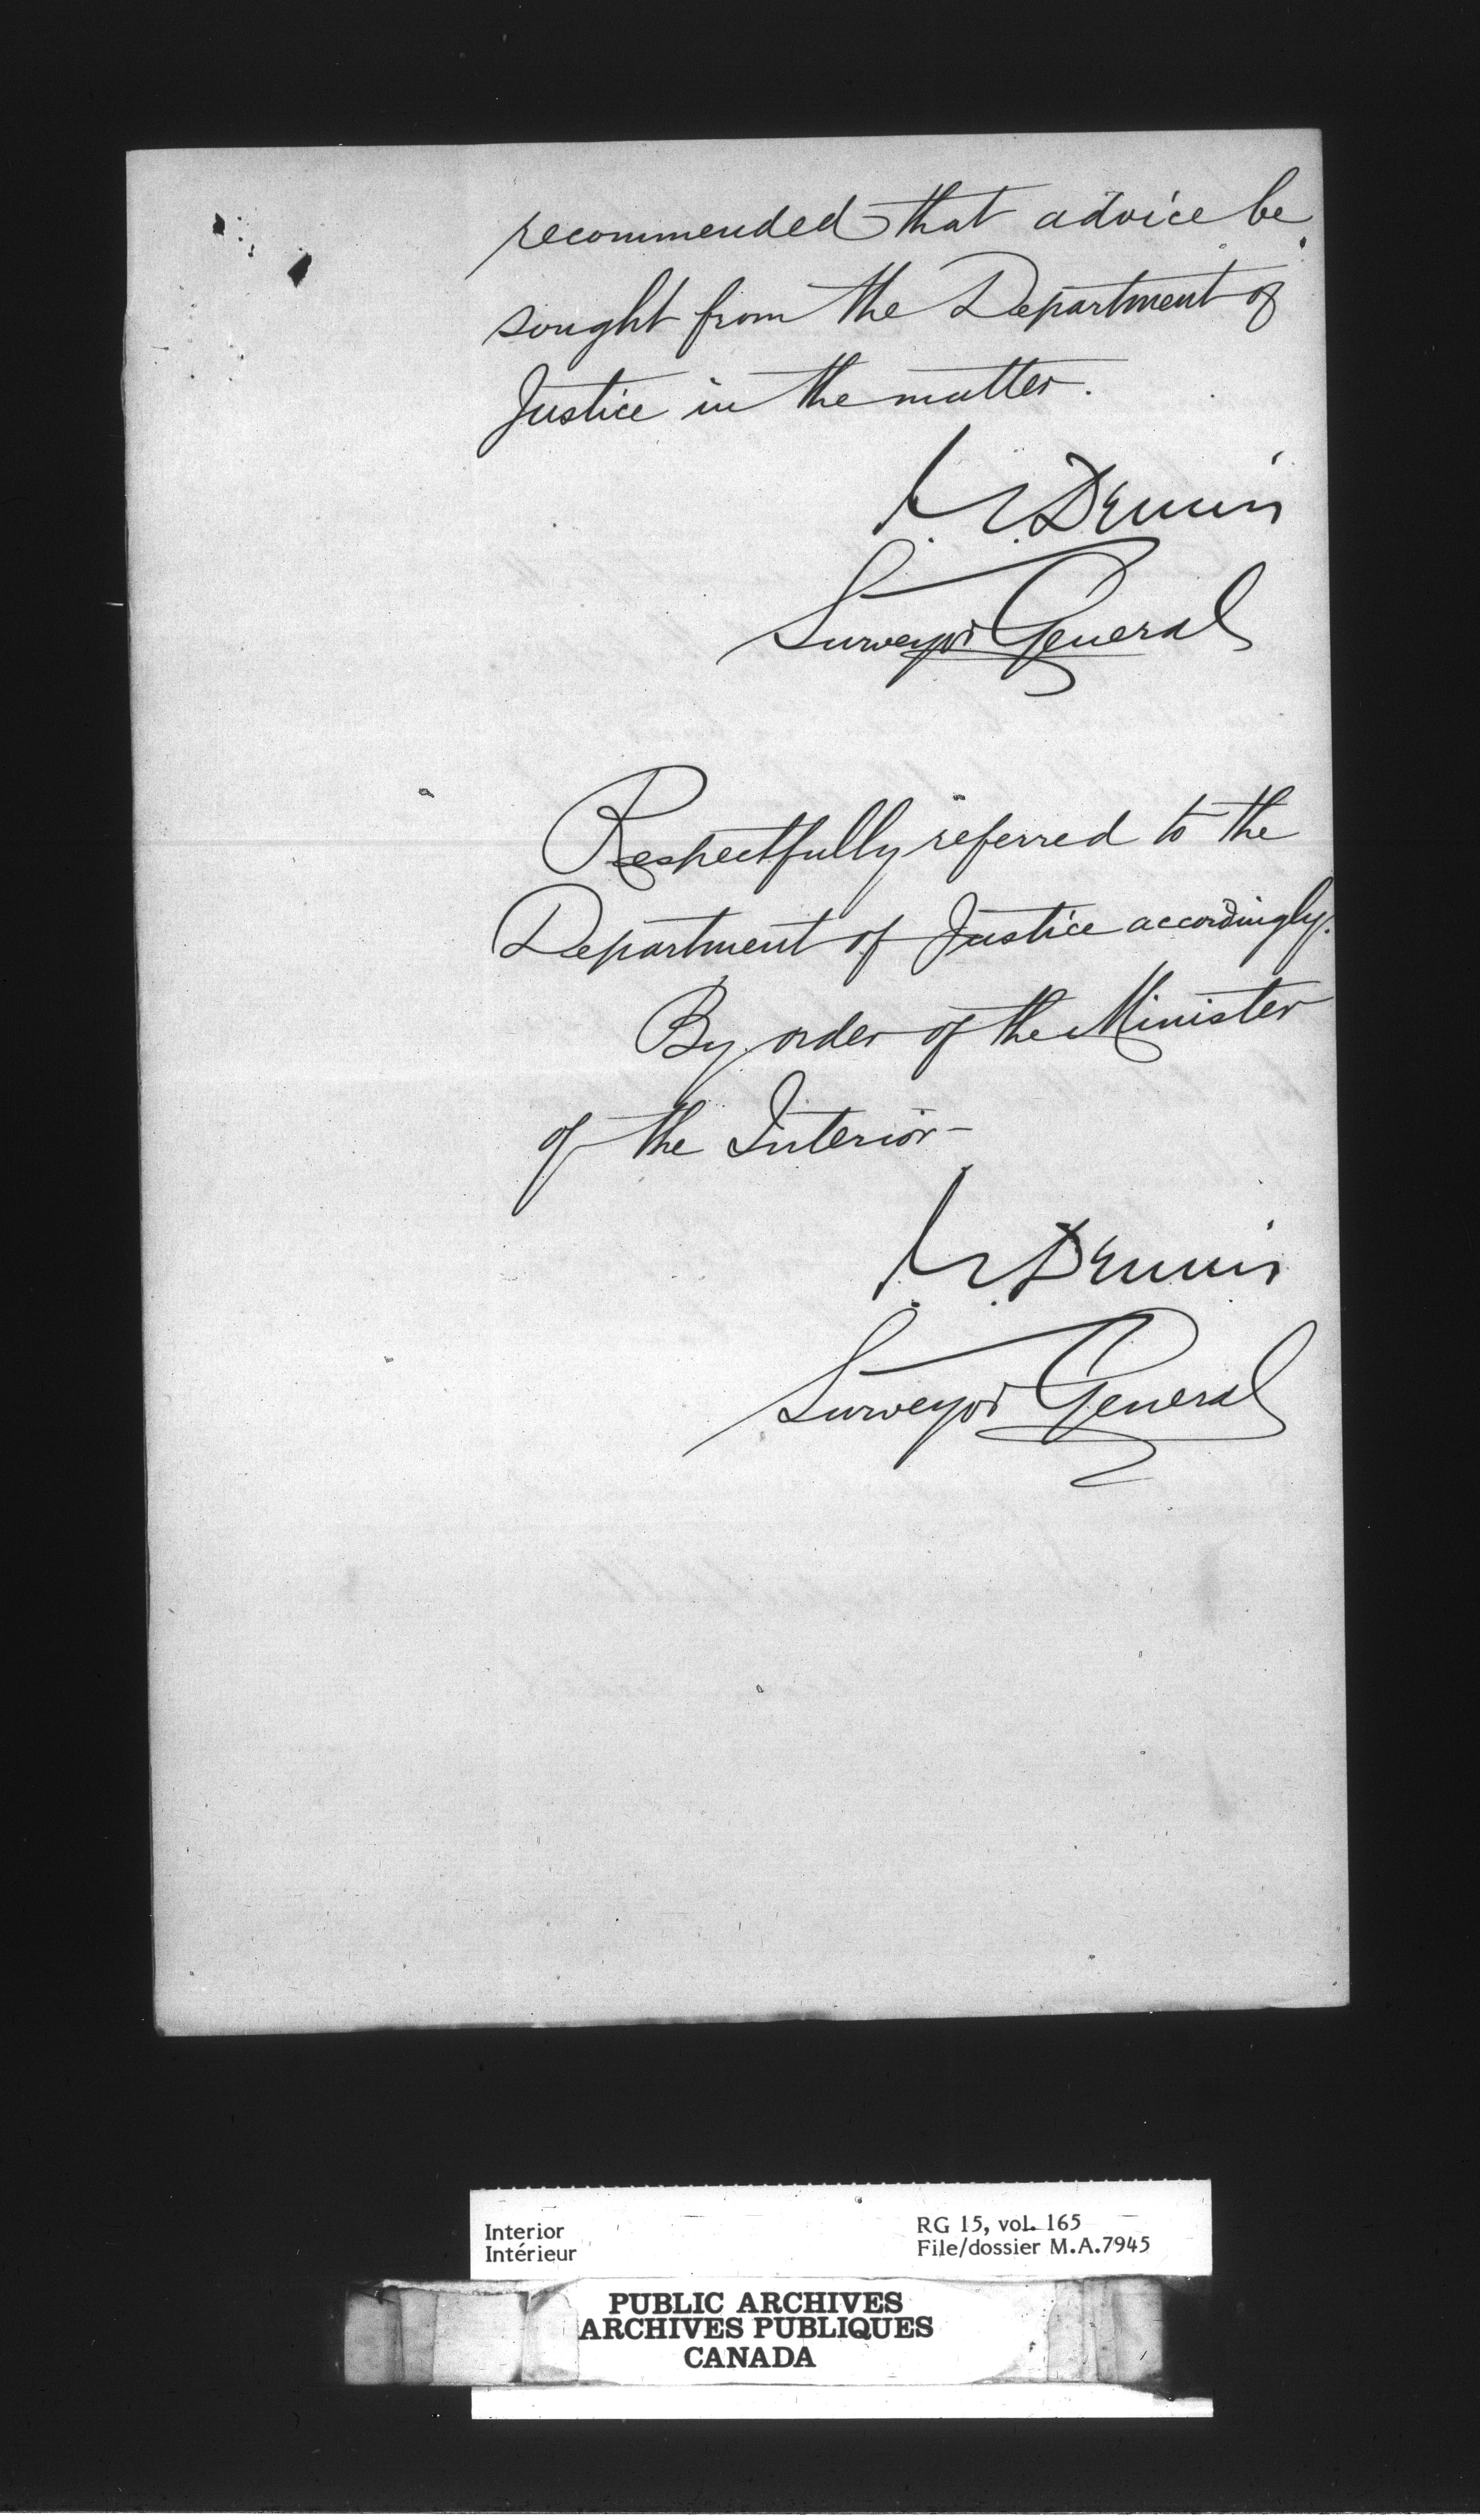 recommended that advice be
sought from the Department of
Justice in the matter.
J. S. Dennis
Surveyor General
Respectfully referred to the
Department of Justice accordingly.
By order of the Minister
of the Interior-
J. S. Dennis
Surveyor General
Interior
Intérieur
RG 15, vol. 165
File/dossier M.A.7945
PUBLIC ARCHIVES
ARCHIVES PUBLIQUES
CANADA